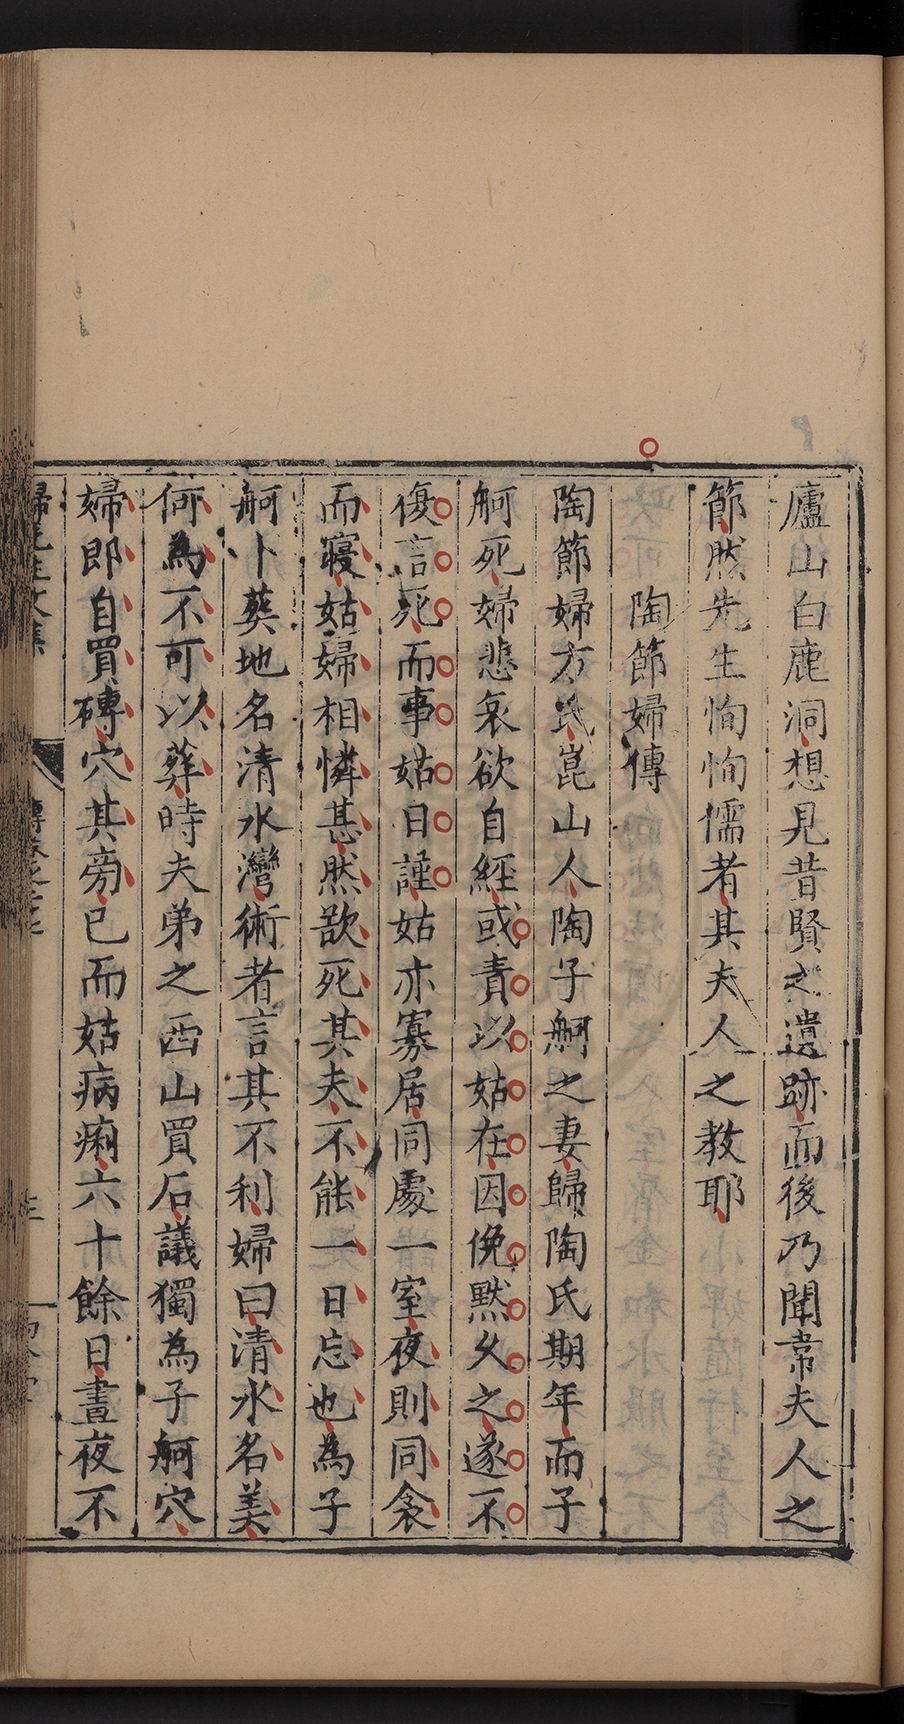 廬山白鹿洞想見昔賢之遺跡而後乃聞常夫人之
節然先生恂恂儒者其夫人之教耶
陶節婦傳
陶節婦方氏崑山人陶子舸之妻歸陶氏期年而子
舸死婦悲哀欲自經或責以姑在因俛默久之遂不
復言死而事姑日謹姑亦寡居同處一室夜則同衾
而寢姑婦相憐甚然欲死其夫不能一日忘也為子
舸卜葬地名清水灣術者言其不利婦曰清水名美
何為不可以葬時夫弟之西山買石議獨為子舸穴
婦即自買磚穴其旁已而姑病痢六十餘日晝夜不